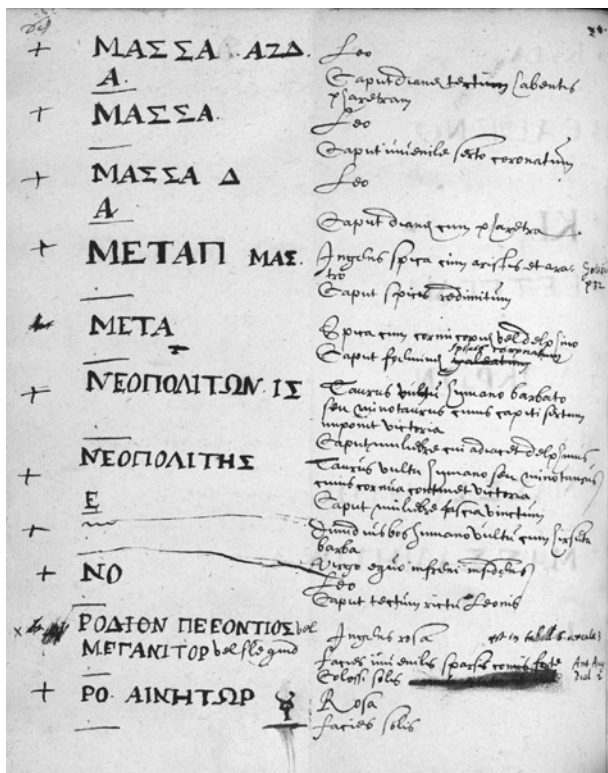 69
+ ΜΑΣΣΑ ΑΖΔ. Leo
Α. Caput diane tectum habentis
pharetram
+ ΜΑΣΣΑ. Leo
Caput iuvenile serto coronatum
+ ΜΑΣΣΑ Δ Leo
Α Caput diane cum pharetra
+ ΜΕΤΑΠ ΜΑΣ. Angelus spica cum aristis et ara
Caput spicis redimitum
ΜΕΤΑ Spica cum cornu copiae vel delphino
spicis coronatum
Caput galeatum
+ ΝΕΟΠΟΛΙΤΩΝ ΙΣ Taurus vultu humano barbato
seu minotaurus cuius capiti sertum
imponit victoria
Caput muliebre cui adiacet delphinus
+ ΝΕΟΠΟΛΙΤΗΣ Taurus vultu humano seu minotaurus
cuius cornua continet victoria
Ε Caput muliebre fascia vinctum
+ bos humano vultu cum hirsuta
barba
+ ΝΟ Virgo equo infreni insidens
Leo
Caput tectum rictu Leonis
x ΡΟΔΙΟΝ ΠΕΕΟΝΤΙΟΣ vel Angelus rosa est in tabell
ΜΕΓΑΝΙΤΟΡ vel facies iuvenilis sparsis comis forte
Colossi solis
+ ΡΟ ΑΙΝΗΤΩΡ Rosa
facies solis